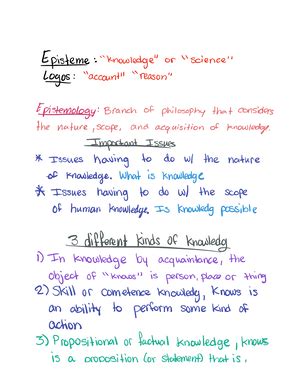 Episteme : "knowledge" or "science"
Logos: "account" "reason"
Epistemology: Branch of philosophy that considers
the nature, scope, and acquisition of knowledge.
Important Issues
* Issues having to do w/ the nature
of knowledge. What is knowledge
* Issues having to do w/ the scope
of human knowledge. Is knowledg possible
3 different kinds of knowledg
1) In knowledge by acquaintance, the
object of "knows" is person, place or thing
2) Skill or comtence knowledg, knows is
an ability to perform some kind of
action
3) Propositional or factual knowledge, knows
is a proposition (or statement) that is,